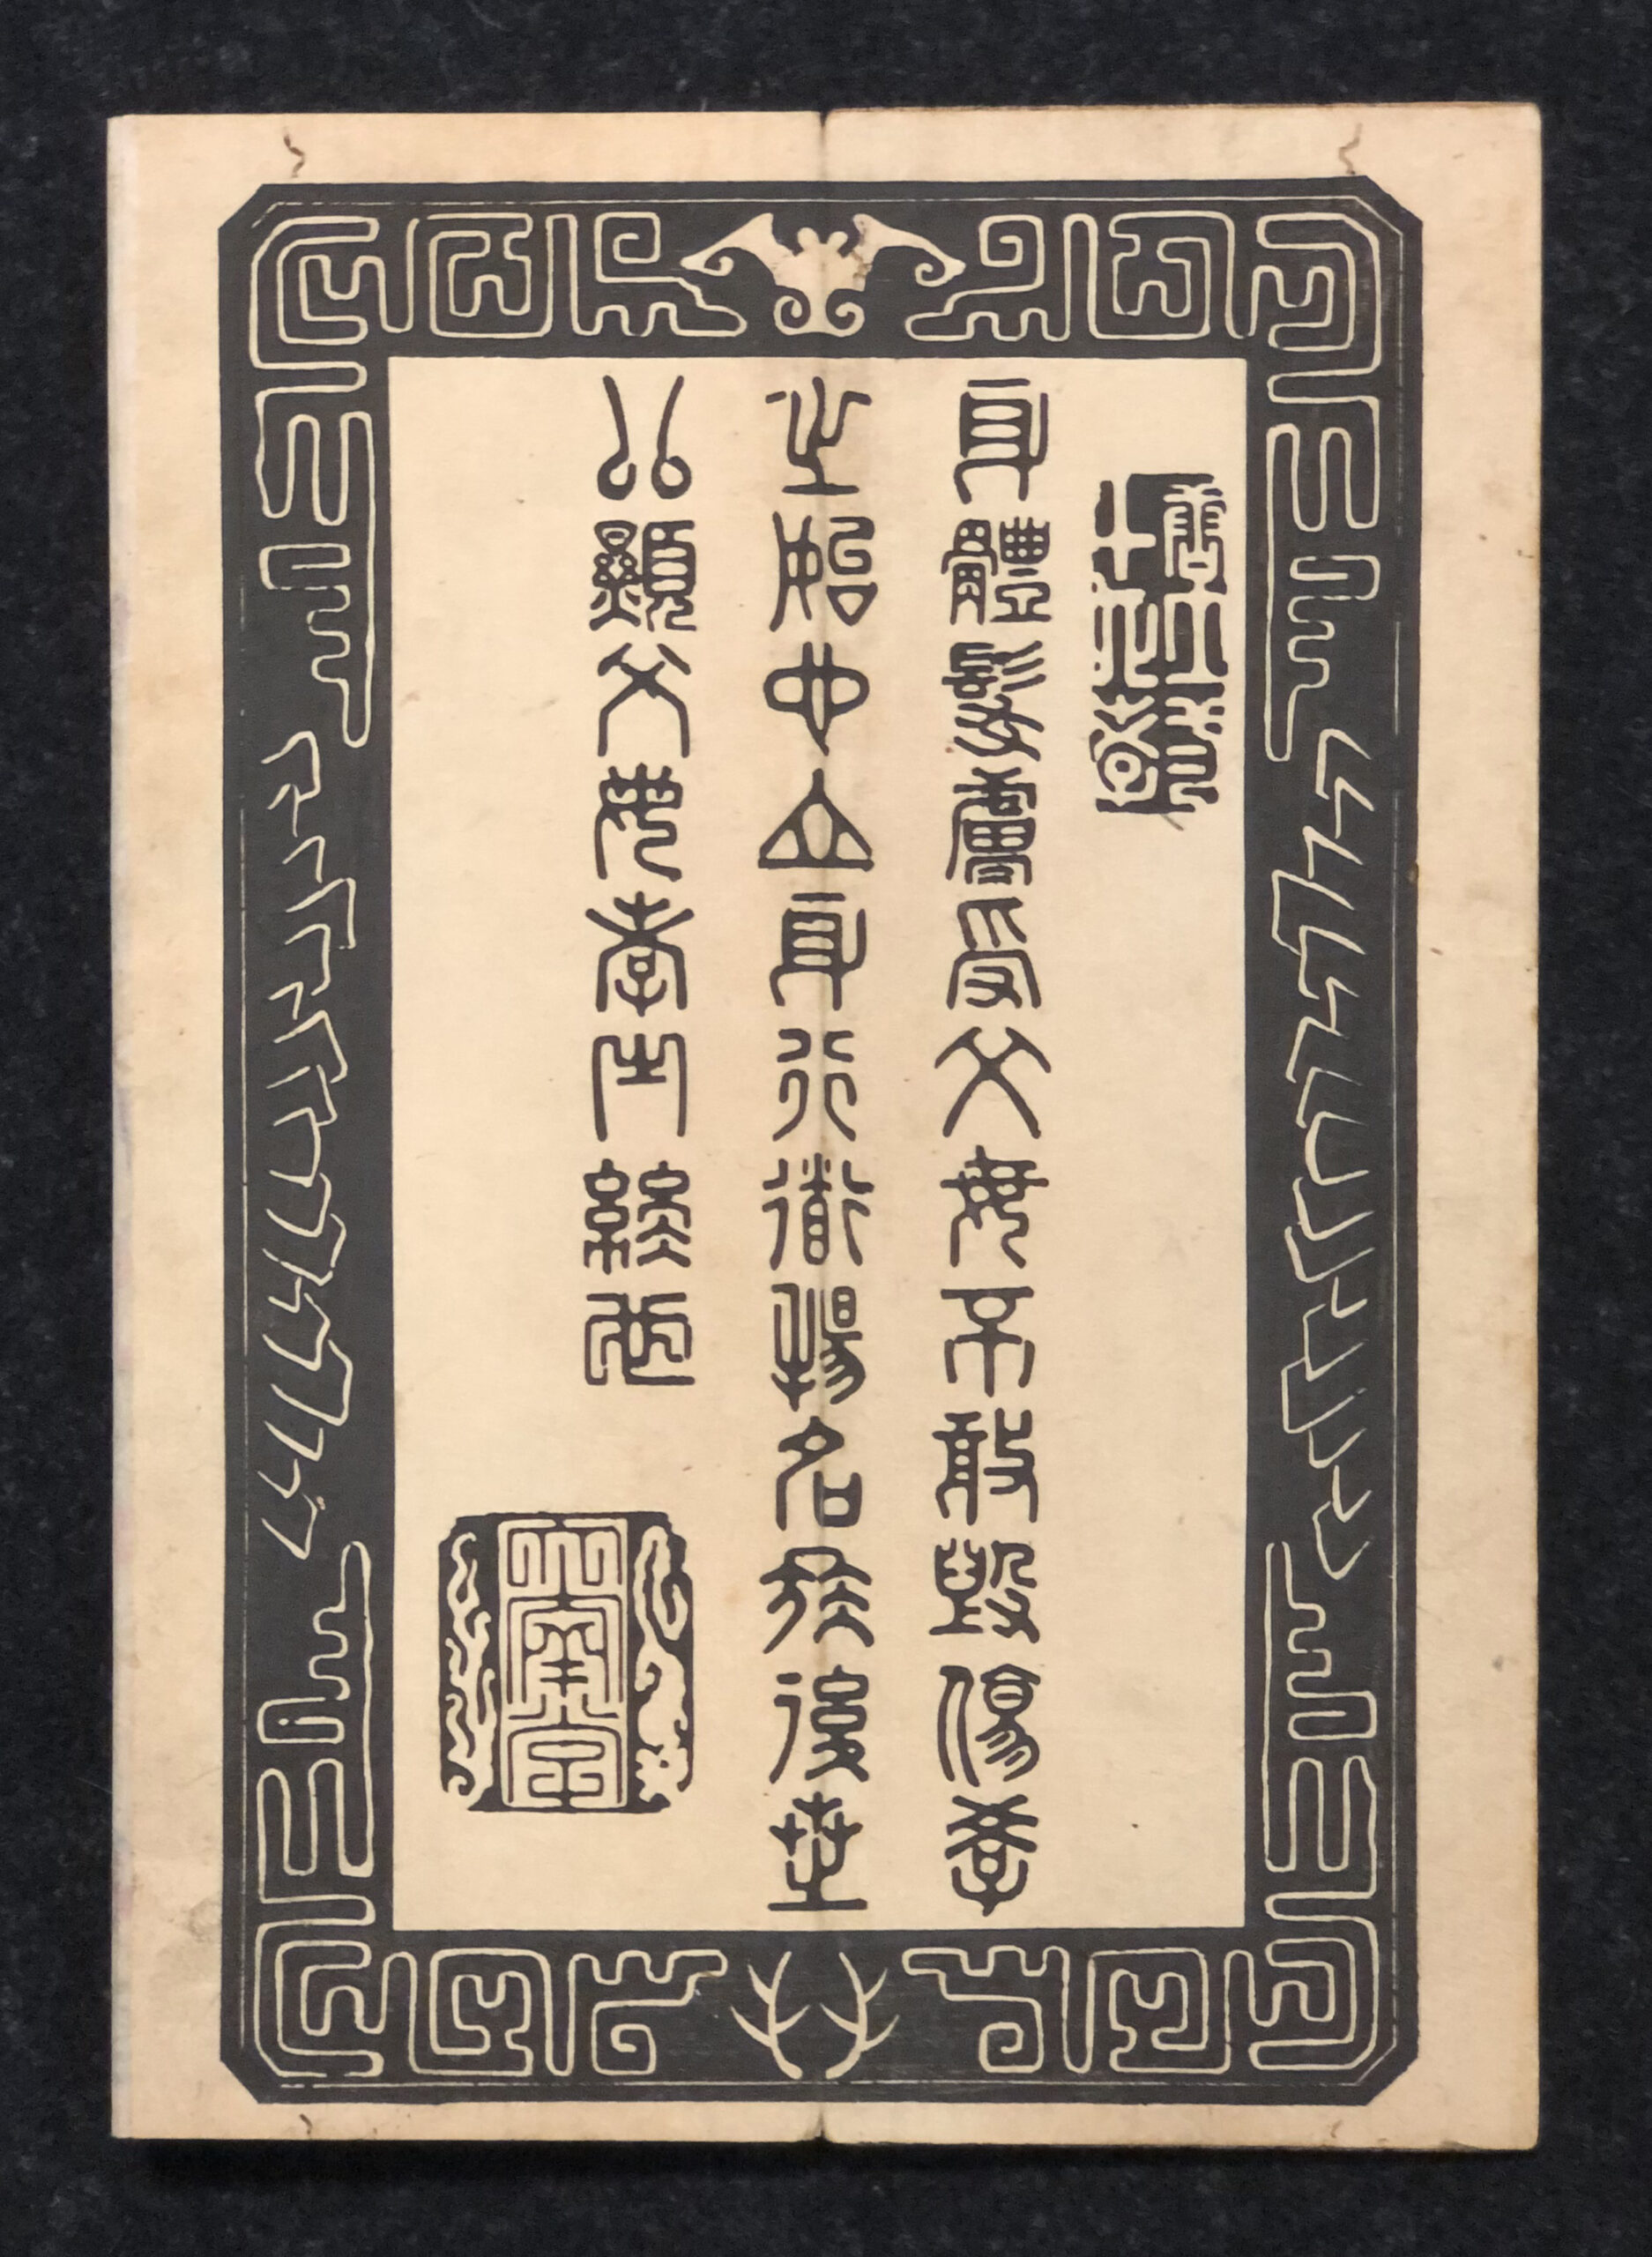 身體髮膚受父母不敢毀傷孝
之始也立身行道揚名於後世
以顯父母孝之終也